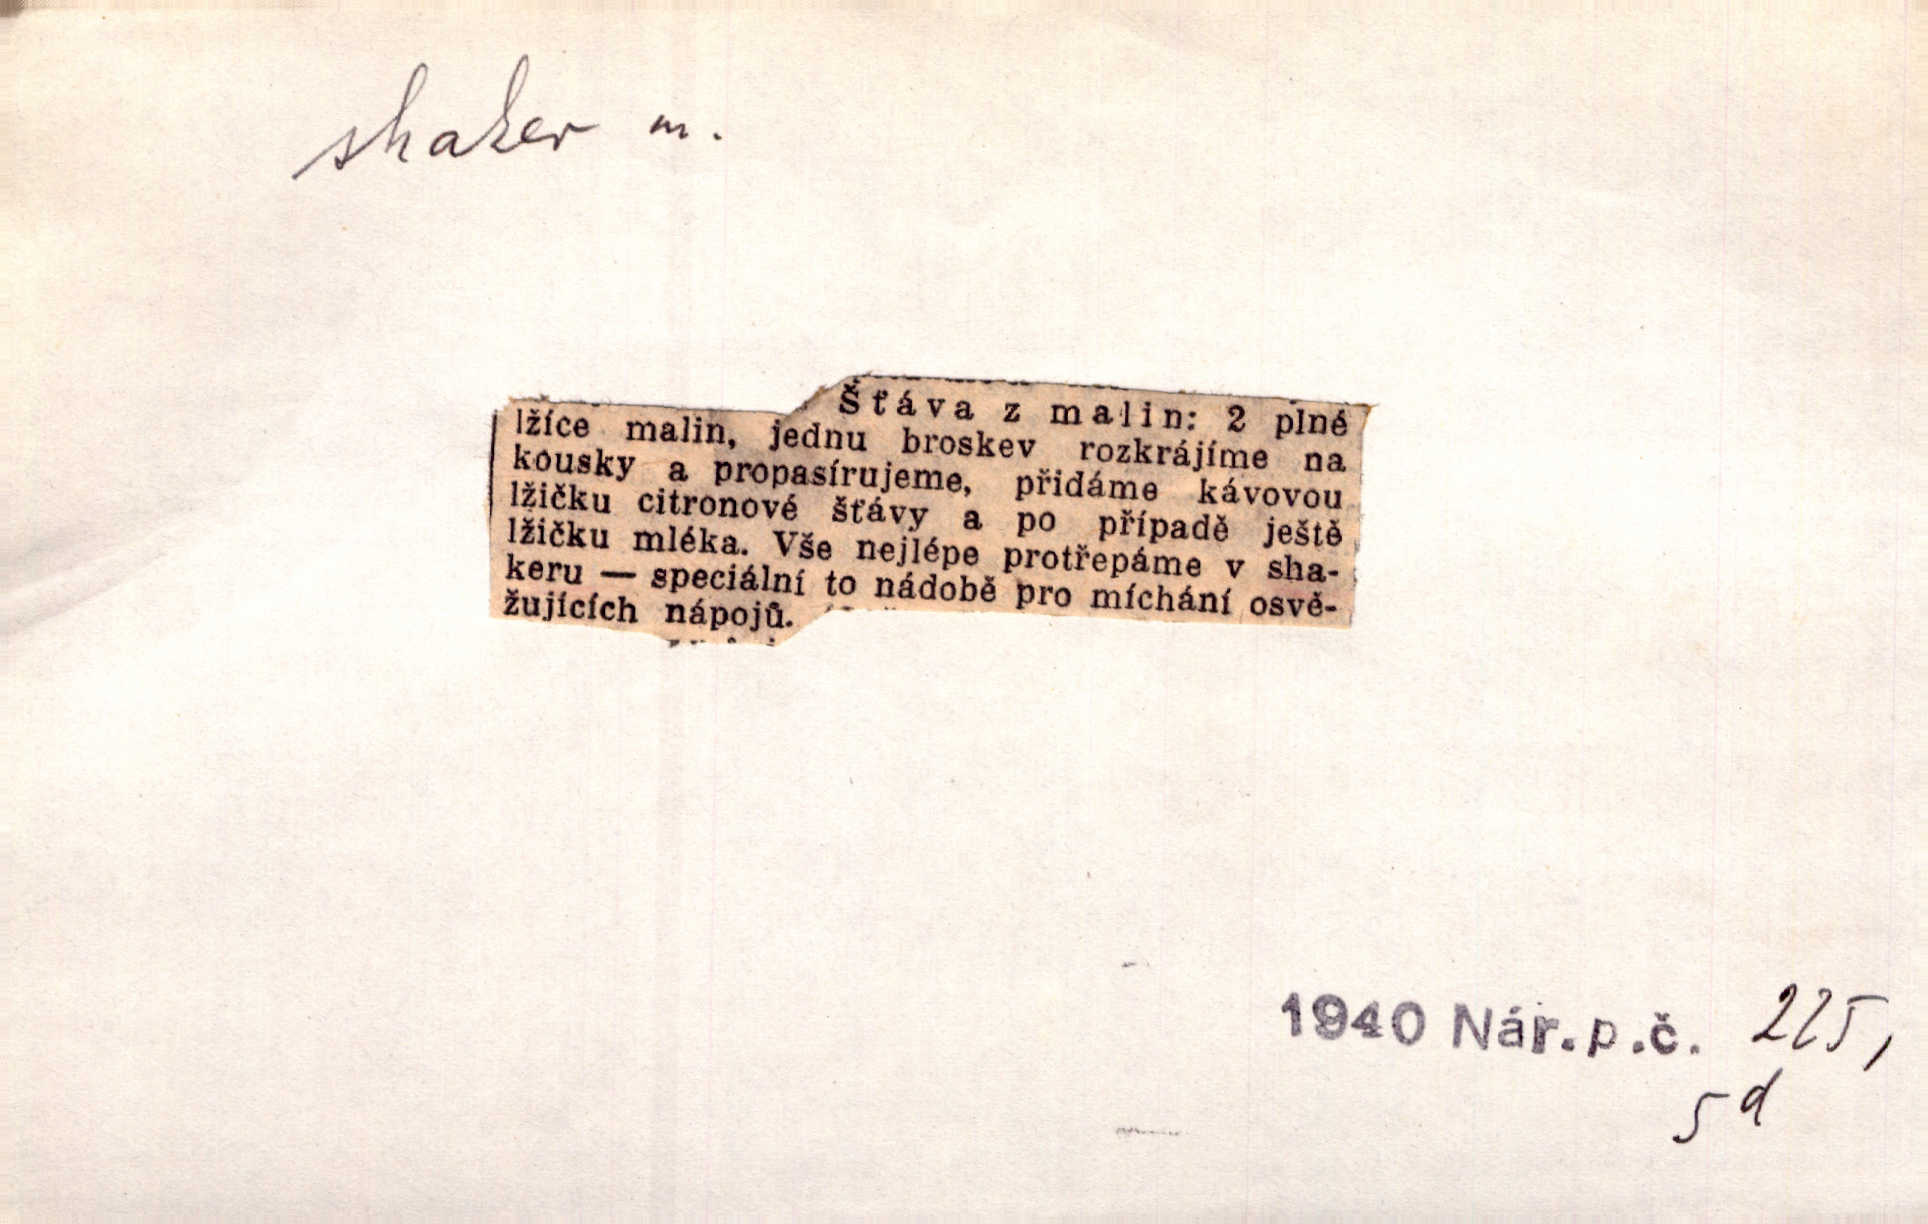 shaker m.
Šťáva z malin: 2 plné
lžíce malin, jednu broskev rozkrájíme na
kousky a propasírujeme, přidáme kávovou
lžičku citronové šťávy a po případě ještě
lžičku mléka. Vše nejlépe protřepáme v sha-
keru — speciální to nádobě pro míchání osvě-
žujících nápojů.
1940 Nár.p.č. 225,
5 d